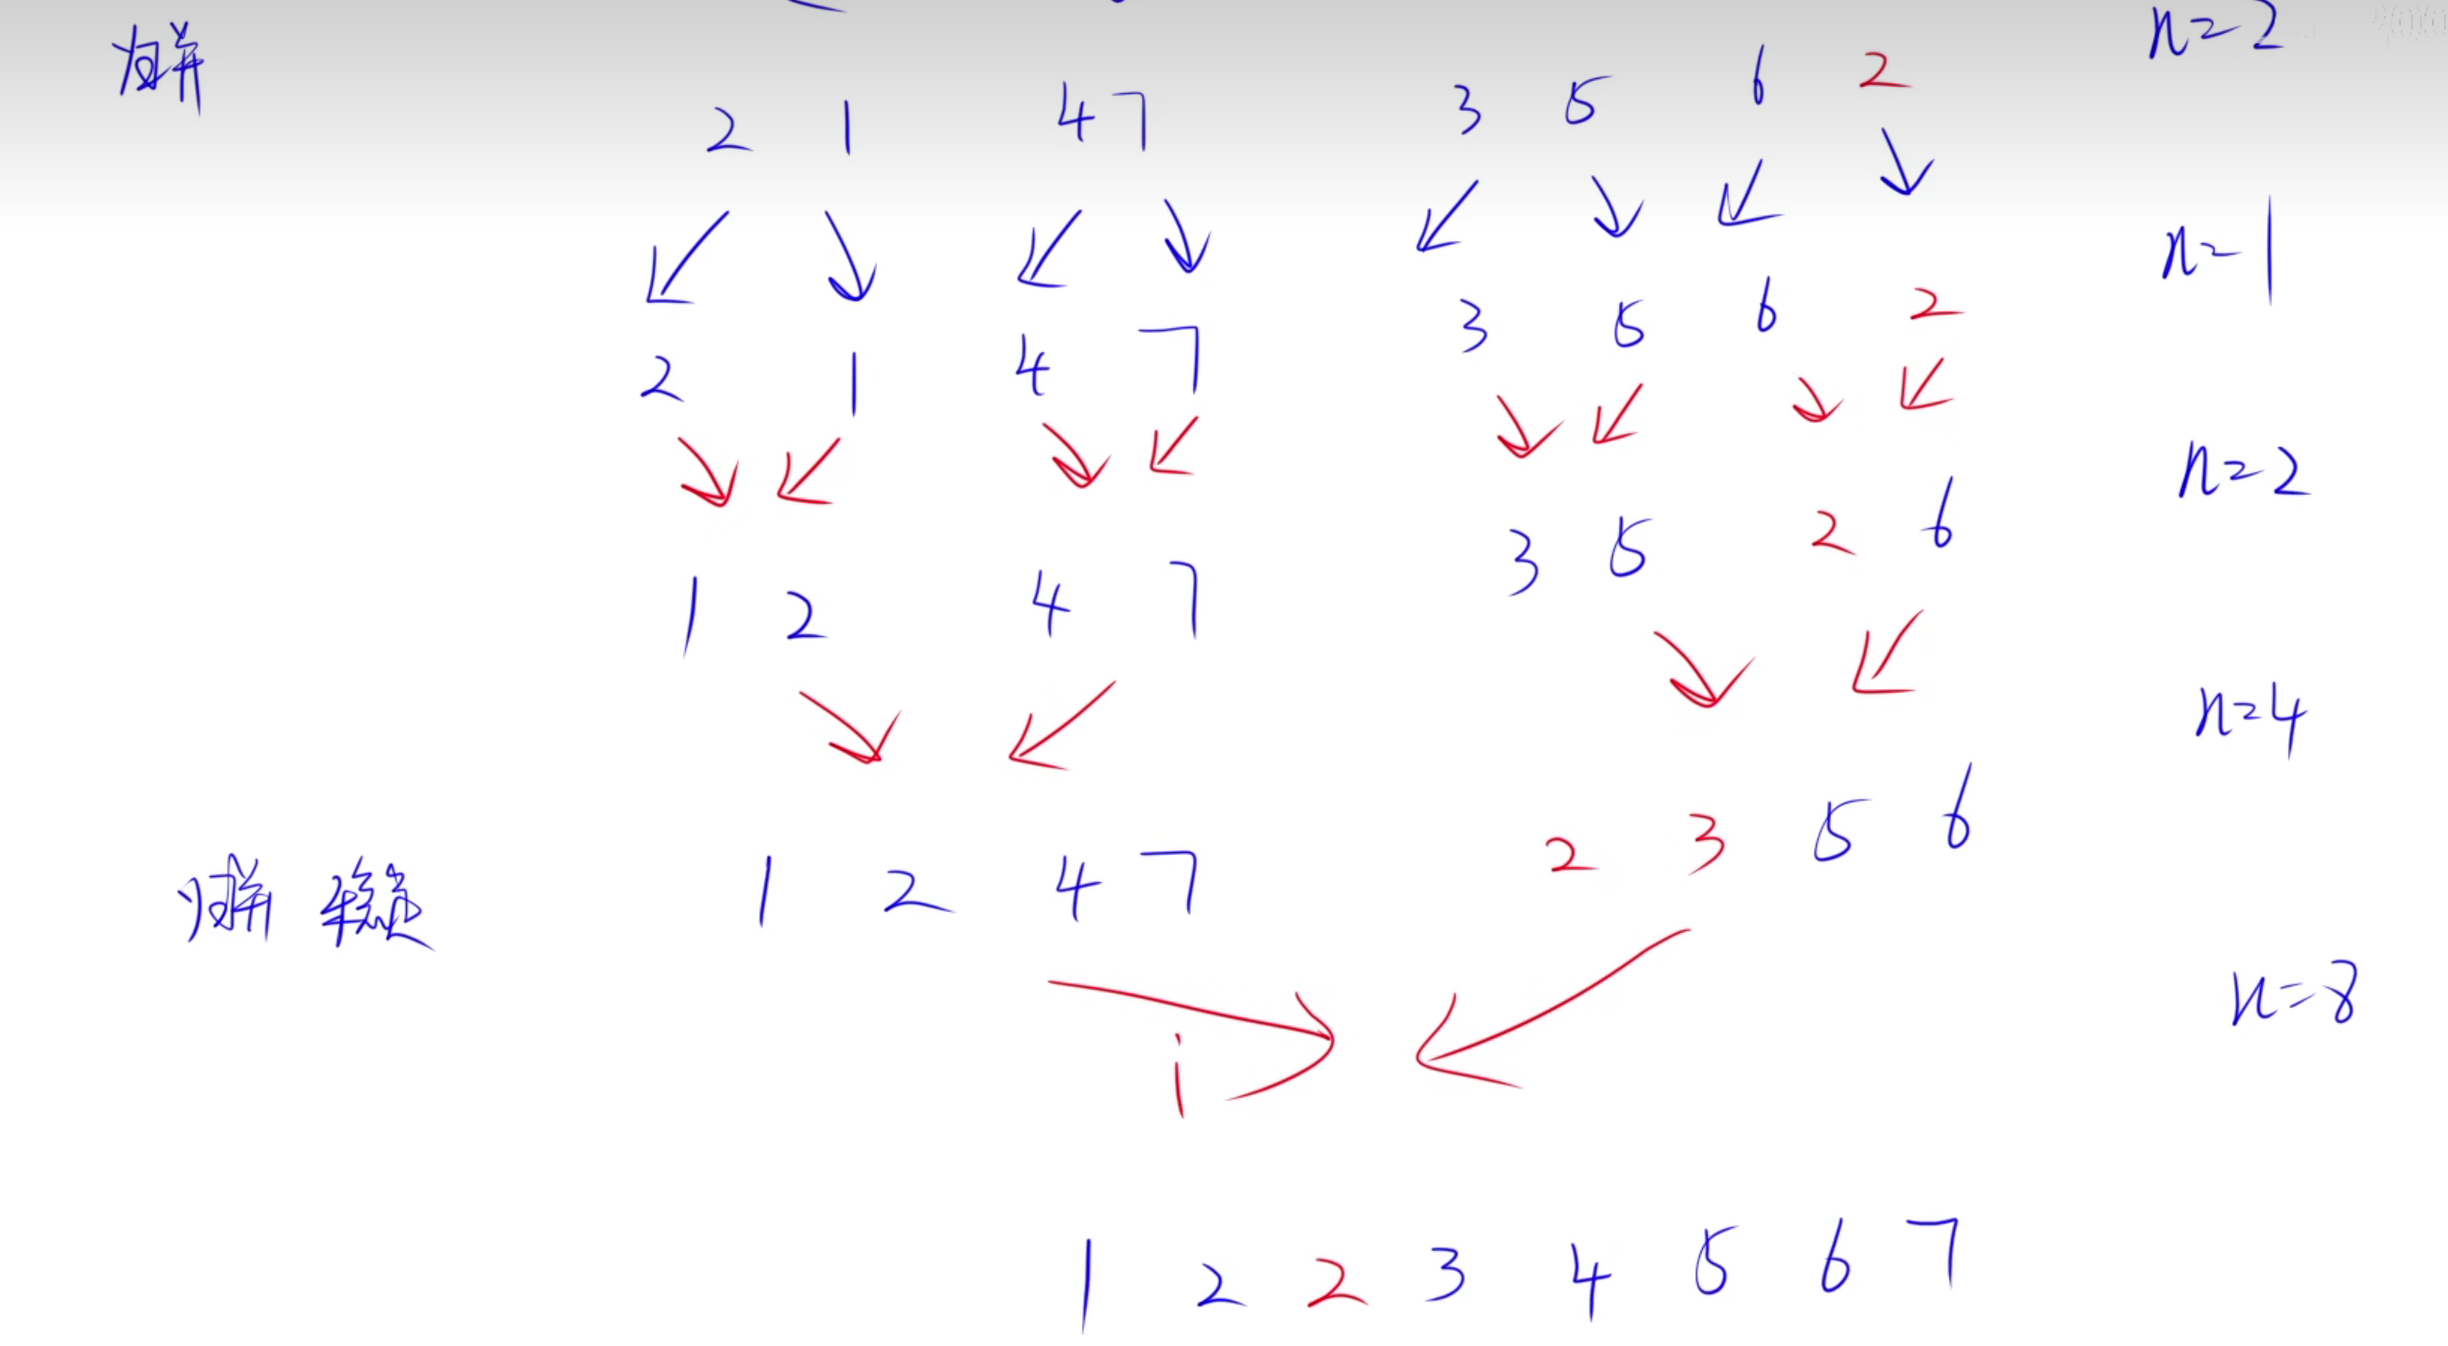 n=2
2 1 4 7 3 5 6 2
n=1
2 1 4 7 3 5 6 2
n=2
1 2 4 7 3 5 2 6
n=4
1 2 4 7 2 3 5 6
n=8
i
1 2 2 3 4 5 6 7